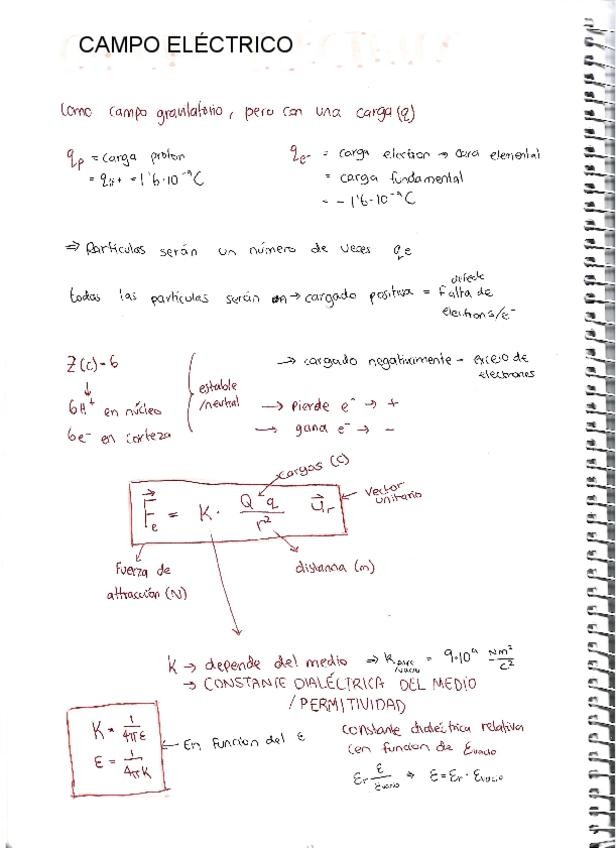 CAMPO ELÉCTRICO
Como campo gravitatorio, pero con una carga (q)
qp = carga proton
= qH+ = 1'6·10⁻¹⁹ C
qe- = carga electron → cara elemental
= carga fundamental
= - 1'6·10⁻¹⁹ C
⇒ Partículas serán un número de veces qe
todas las partículas serán → cargado positiva = falta de
defecto
electrons/e⁻
Z(c)=6
↓
6H⁺ en núcleo
6e⁻ en corteza
estable
/neutral
→ cargado negativamente - exceso de
electrones
→ Pierde e⁻ → +
→ gana e⁻ → -
cargas (C)
F⃗e = K· Q·q/r² u⃗r
vector
unitario
Fuerza de
attracción (N)
distancia (m)
K → depende del medio ⇒ K aire/vacío = 9·10⁹ Nm²/C²
→ CONSTANTE DIALÉCTRICA DEL MEDIO
/PERMITIVIDAD
K = 1/4πε
ε = 1/4πK
← En funcion del ε
constante dialectrica relativa
(en funcion de εvacio
εr ε/εvacio ⇒ ε = εr · εvacio